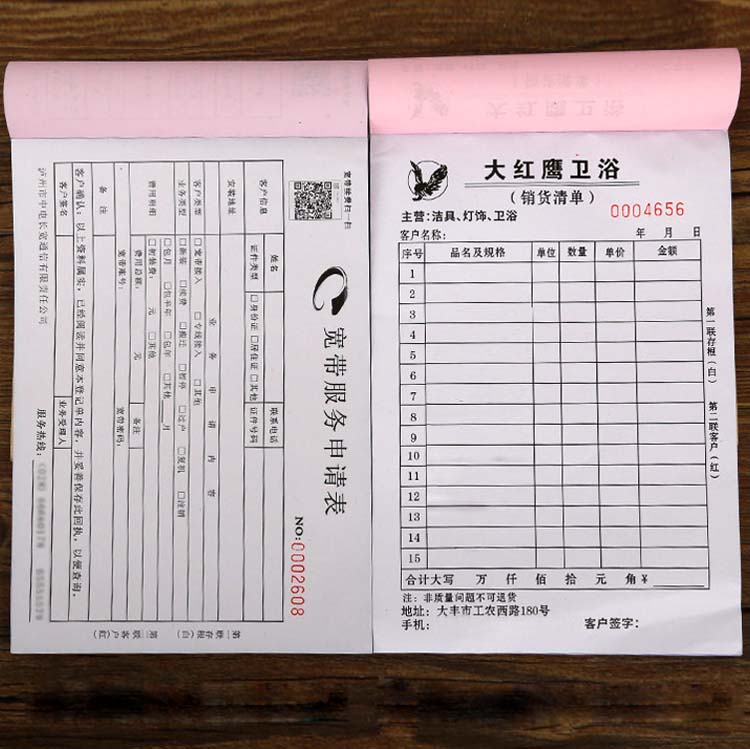 宽带续费扫一扫
宽带服务申请表
NO:0002608
客户信息 姓名 联系电话
证件类型 □身份证 □居住证 □其他 证件号码
安装地址
业务申请内容
客户类型 □宽带接入 □专线接入 □其他
业务类型 □新装 □续费 □搬迁 □暂停 □过户 □复机 □注销
费用明细 □包月 □包半年 □包年 □其他___月
□初装费: 元 □其他
费用总额: 元 备注
宽带账号: 宽带密码:
备注
客户确认:以上资料属实,已经阅读并同意本登记单内容,并妥善保存此回执,以便查询。
客户签名 业务受理人
泸州市中电长宽通信有限责任公司 服务热线:
第一联存根(白) 第二联客户(红)
大红鹰卫浴
(销货清单)
主营:洁具、灯饰、卫浴 0004656
客户名称: 年 月 日
序号 品名及规格 单位 数量 单价 金额
1
2
3
4
5
6
7
8
9
10
11
12
13
14
15
合计大写 万 仟 佰 拾 元 角 ¥
注:非质量问题不可退货
地址:大丰市工农西路180号
手机: 客户签字:
第一联存根(白) 第二联客户(红)